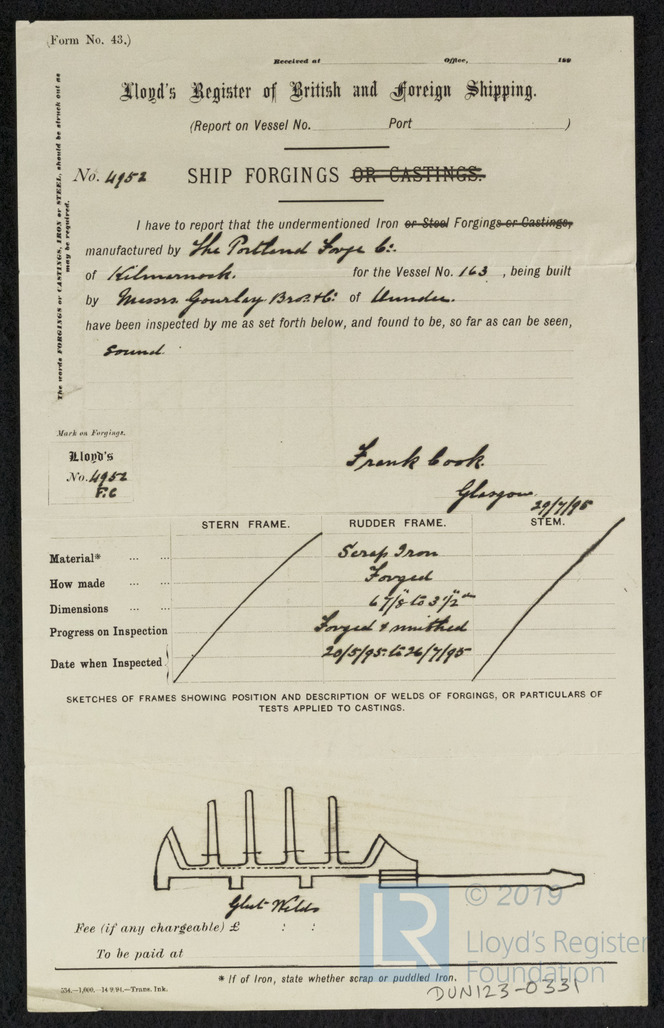 (Form No. 43.)
Received at Office, 189
Lloyd's Register of British and Foreign Shipping.
(Report on Vessel No. Port )
No. 4952 SHIP FORGINGS OR CASTINGS.
The words FORGINGS or CASTINGS, IRON or STEEL, should be struck out as
may be required.
I have to report that the undermentioned Iron or Steel Forgings or Castings,
manufactured by The Portland Forge Co.
of Kilmarnock. for the Vessel No. 163, being built
by Messrs Gourlay Bros. & Co. of Dundee.
have been inspected by me as set forth below, and found to be, so far as can be seen,
sound.
Mark on Forgings.
Lloyd's
No. 4952
F.C
Frank Cook.
Glasgow.
29/7/95
STERN FRAME. RUDDER FRAME. STEM.
Material* ... ... Scrap Iron
How made ... ... Forged
Dimensions ... ... 6 7/8" to 3 1/2" dr
Progress on Inspection Forged & smithed
Date when Inspected 20/5/95 to 26/7/95
SKETCHES OF FRAMES SHOWING POSITION AND DESCRIPTION OF WELDS OF FORGINGS, OR PARTICULARS OF
TESTS APPLIED TO CASTINGS.
Glut Welds
Fee (if any chargeable) £ : :
To be paid at
* If of Iron, state whether scrap or puddled Iron.
534.—1,000.—14 9.94.—Trans. Ink.
DUN123-0331
LR
© 2019
Lloyd's Register
Foundation